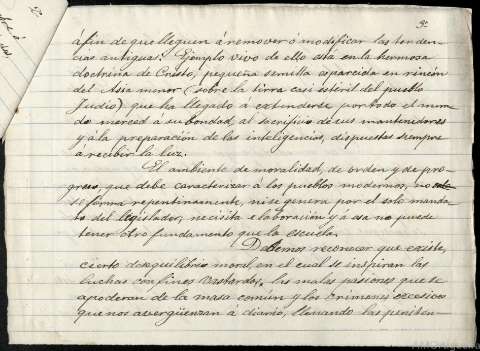 9.
á fin de que lleguen á remover ó modificar las tenden-
cias antiguas. Ejemplo vivo de ello está en la hermosa
doctrina de Cristo, pequeña semilla esparcida en rincón
del Asia menor (sobre la tierra casi estéril del pueblo
Judío) que ha llegado á extenderse por todo el mun-
do merced á su bondad, al sacrificio de sus mantenedores
y á la preparación de las inteligencias, dispuestas siempre
a recibir la luz.
El ambiente de moralidad, de orden y de pro-
greso, que debe caracterizar á los pueblos modernos, no
se forma repentinamente, ni se genera por el solo manda-
to del legislador; necesita elaboración y á esa no puede
tener otro fundamento que la escuela.
Debemos reconocer que existe
cierto desequilibrio moral, en el cual se inspiran las
luchas con fines bastardos, las malas pasiones que se
apoderan de la masa común y los crímenes excesivos
que nos avergüenzan á diario, llenando las peniten-